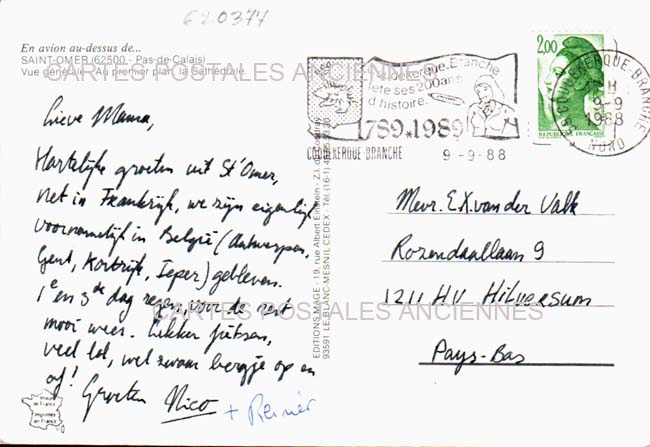 620377
En avion au-dessus de...
SAINT-OMER (62500 - Pas-de-Calais)
Vue générale - Au premier plan, la Cathédrale.
CARTES POSTALES ANCIENNES
Lieve Mama,
Hartelijke groeten uit St'Omer,
net in Frankrijk, we zijn eigenlijk
voornamelijk in België (Antwerpen,
Gent, Kortrijk, Ieper) gebleven.
1e en 3de dag regen voor de rest
mooi weer. Lekker fietsen,
veel lol, wel zwaar bergje op en
af! Groeten Nico + Reinier
Coudekerque-Branche
fête ses 200 ans
d'histoire.
1789*1989
COUDEKERQUE BRANCHE
9-9-88
2,00
REPUBLIQUE FRANÇAISE
COUDEKERQUE-BRANCHE
H
9-9
1988
NORD
EDITIONS MAGE - 19, rue Albert Einstein - Z.I.
93591 LE BLANC-MESNIL CEDEX - Tél. (16-1)
Mevr. E.X. van der Valk
Rozendaallaan 9
1211 HV Hilversum
Pays-Bas
CARTES POSTALES ANCIENNES
image de France
imprimé en France